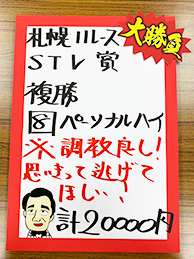 大勝負
札幌11レース
STV賞
複勝
8 ペーソナルハイ
※調教良し!
思いきって逃げて
ほしい、!
計20000円